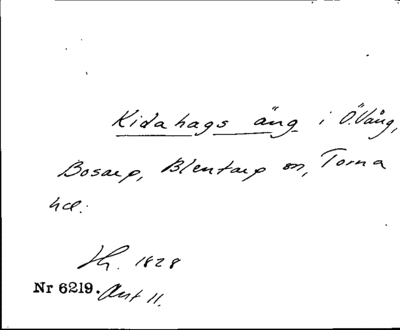 Kidahags äng i Ö. Vång,
Bosarp, Blentarp sn, Torna
hd:
Lh. 1828
Nr 6219. Akt 11.